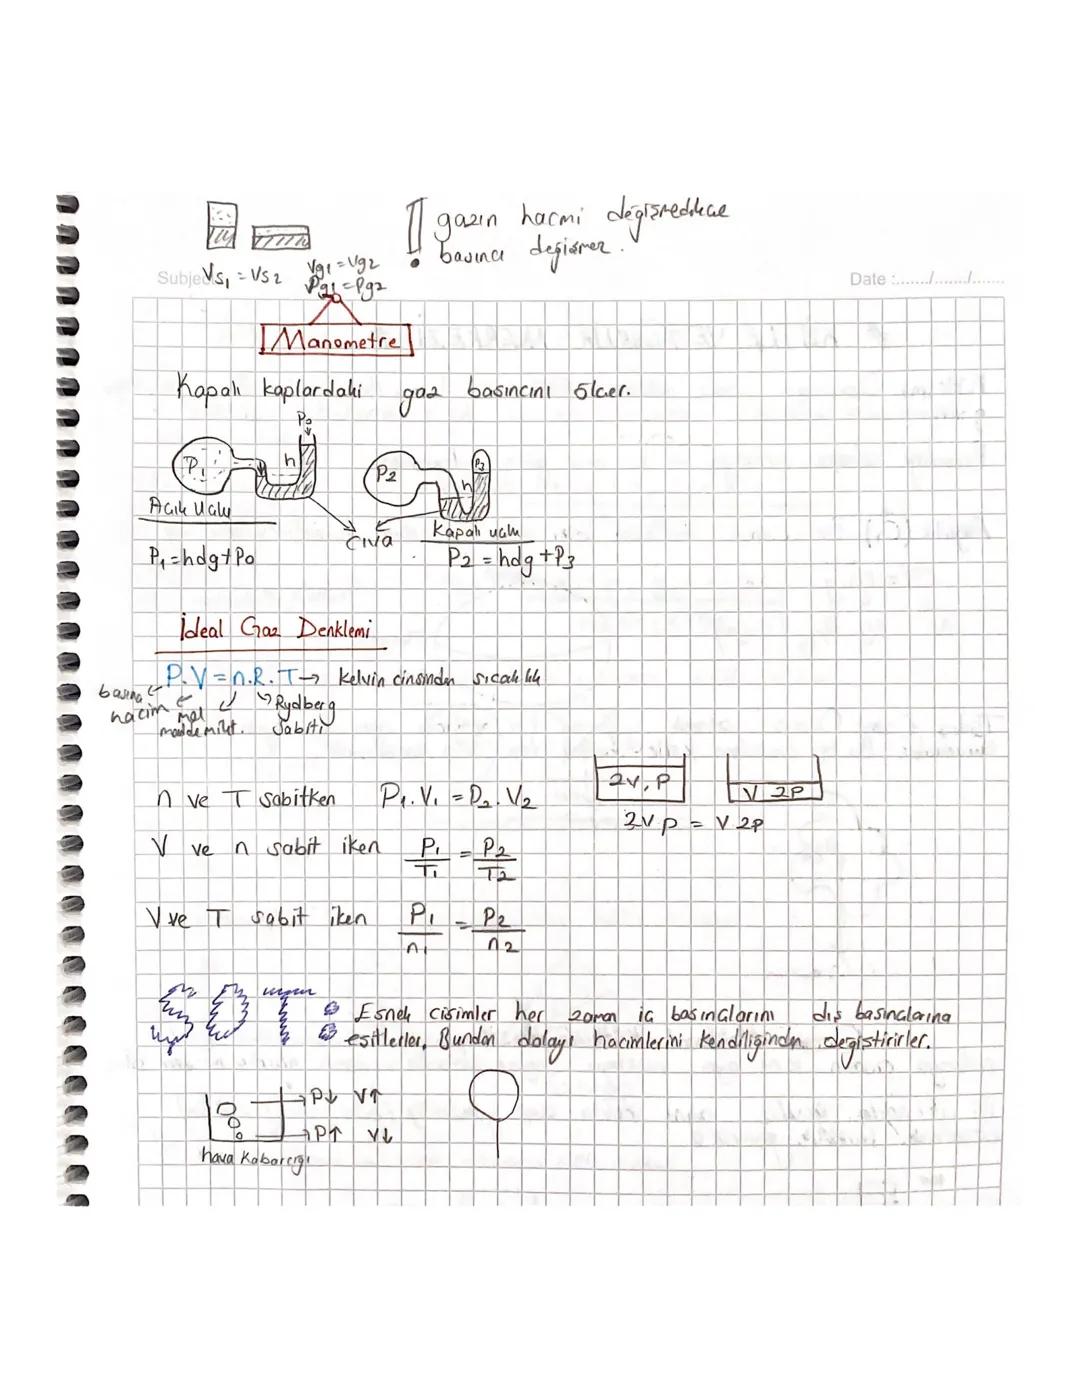 !! gazın hacmi değişmedikçe
basıncı değişmez.
Vs1 = Vs2
Vg1 = Vg2
Pg1 = Pg2
Date :......../......../........
Manometre
Kapalı kaplardaki gaz basıncını ölçer.
P0
P1 h
P2 h P3
Açık Uçlu
Civa
Kapalı uçlu
P1 = hdg + P0
P2 = hdg + P3
İdeal Gaz Denklemi
P.V = n.R.T → Kelvin cinsinden sıcaklık
basınç
hacim
mol
madde mikt.
Rydberg
Sabiti
2V, P
V 2P
n ve T sabitken P1.V1 = P2.V2
2VP = V 2P
V ve n sabit iken P1/T1 = P2/T2
V ve T sabit iken P1/n1 = P2/n2
NOT: Esnek cisimler her zaman iç basınçlarını dış basınçlarına
eşitlerler. Bundan dolayı hacimlerini kendiliğinden değiştirirler.
P↓ V↑
P↑ V↓
hava Kabarcığı